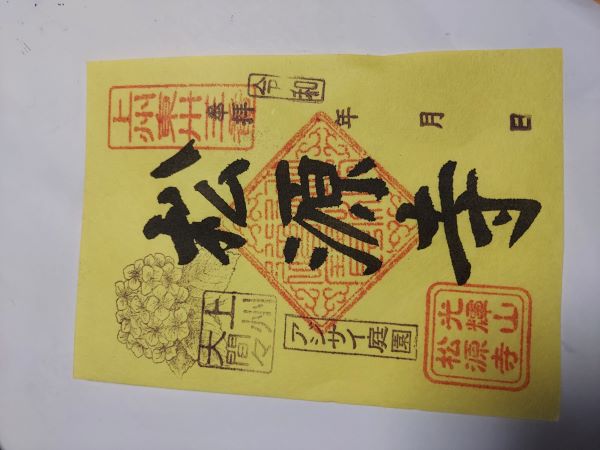 奉拝
令和
年 月 日
松源寺
上州
大間々
アジサイ庭園
光輝山
松源寺